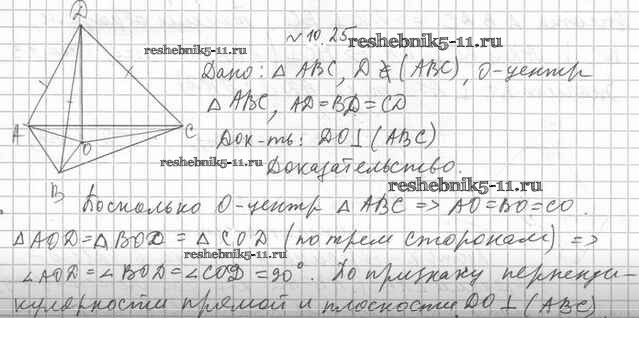 D
№10.25
reshebnik5-11.ru
reshebnik5-11.ru
Дано: △ ABC, D ∉ (ABC), O-центр
△ ABC, AD=BD=CD
A
O
C
Док-ть: DO⊥(ABC)
reshebnik5-11.ru
Доказательство.
B
reshebnik5-11.ru
Поскольку O-центр △ ABC => AO=BO=CO.
△AOD=△BOD=△COD (по трем сторонам) =>
∠AOD=∠BOD=∠COD=90°. По признаку перпенди-
кулярности прямой и плоскости DO⊥(ABC)